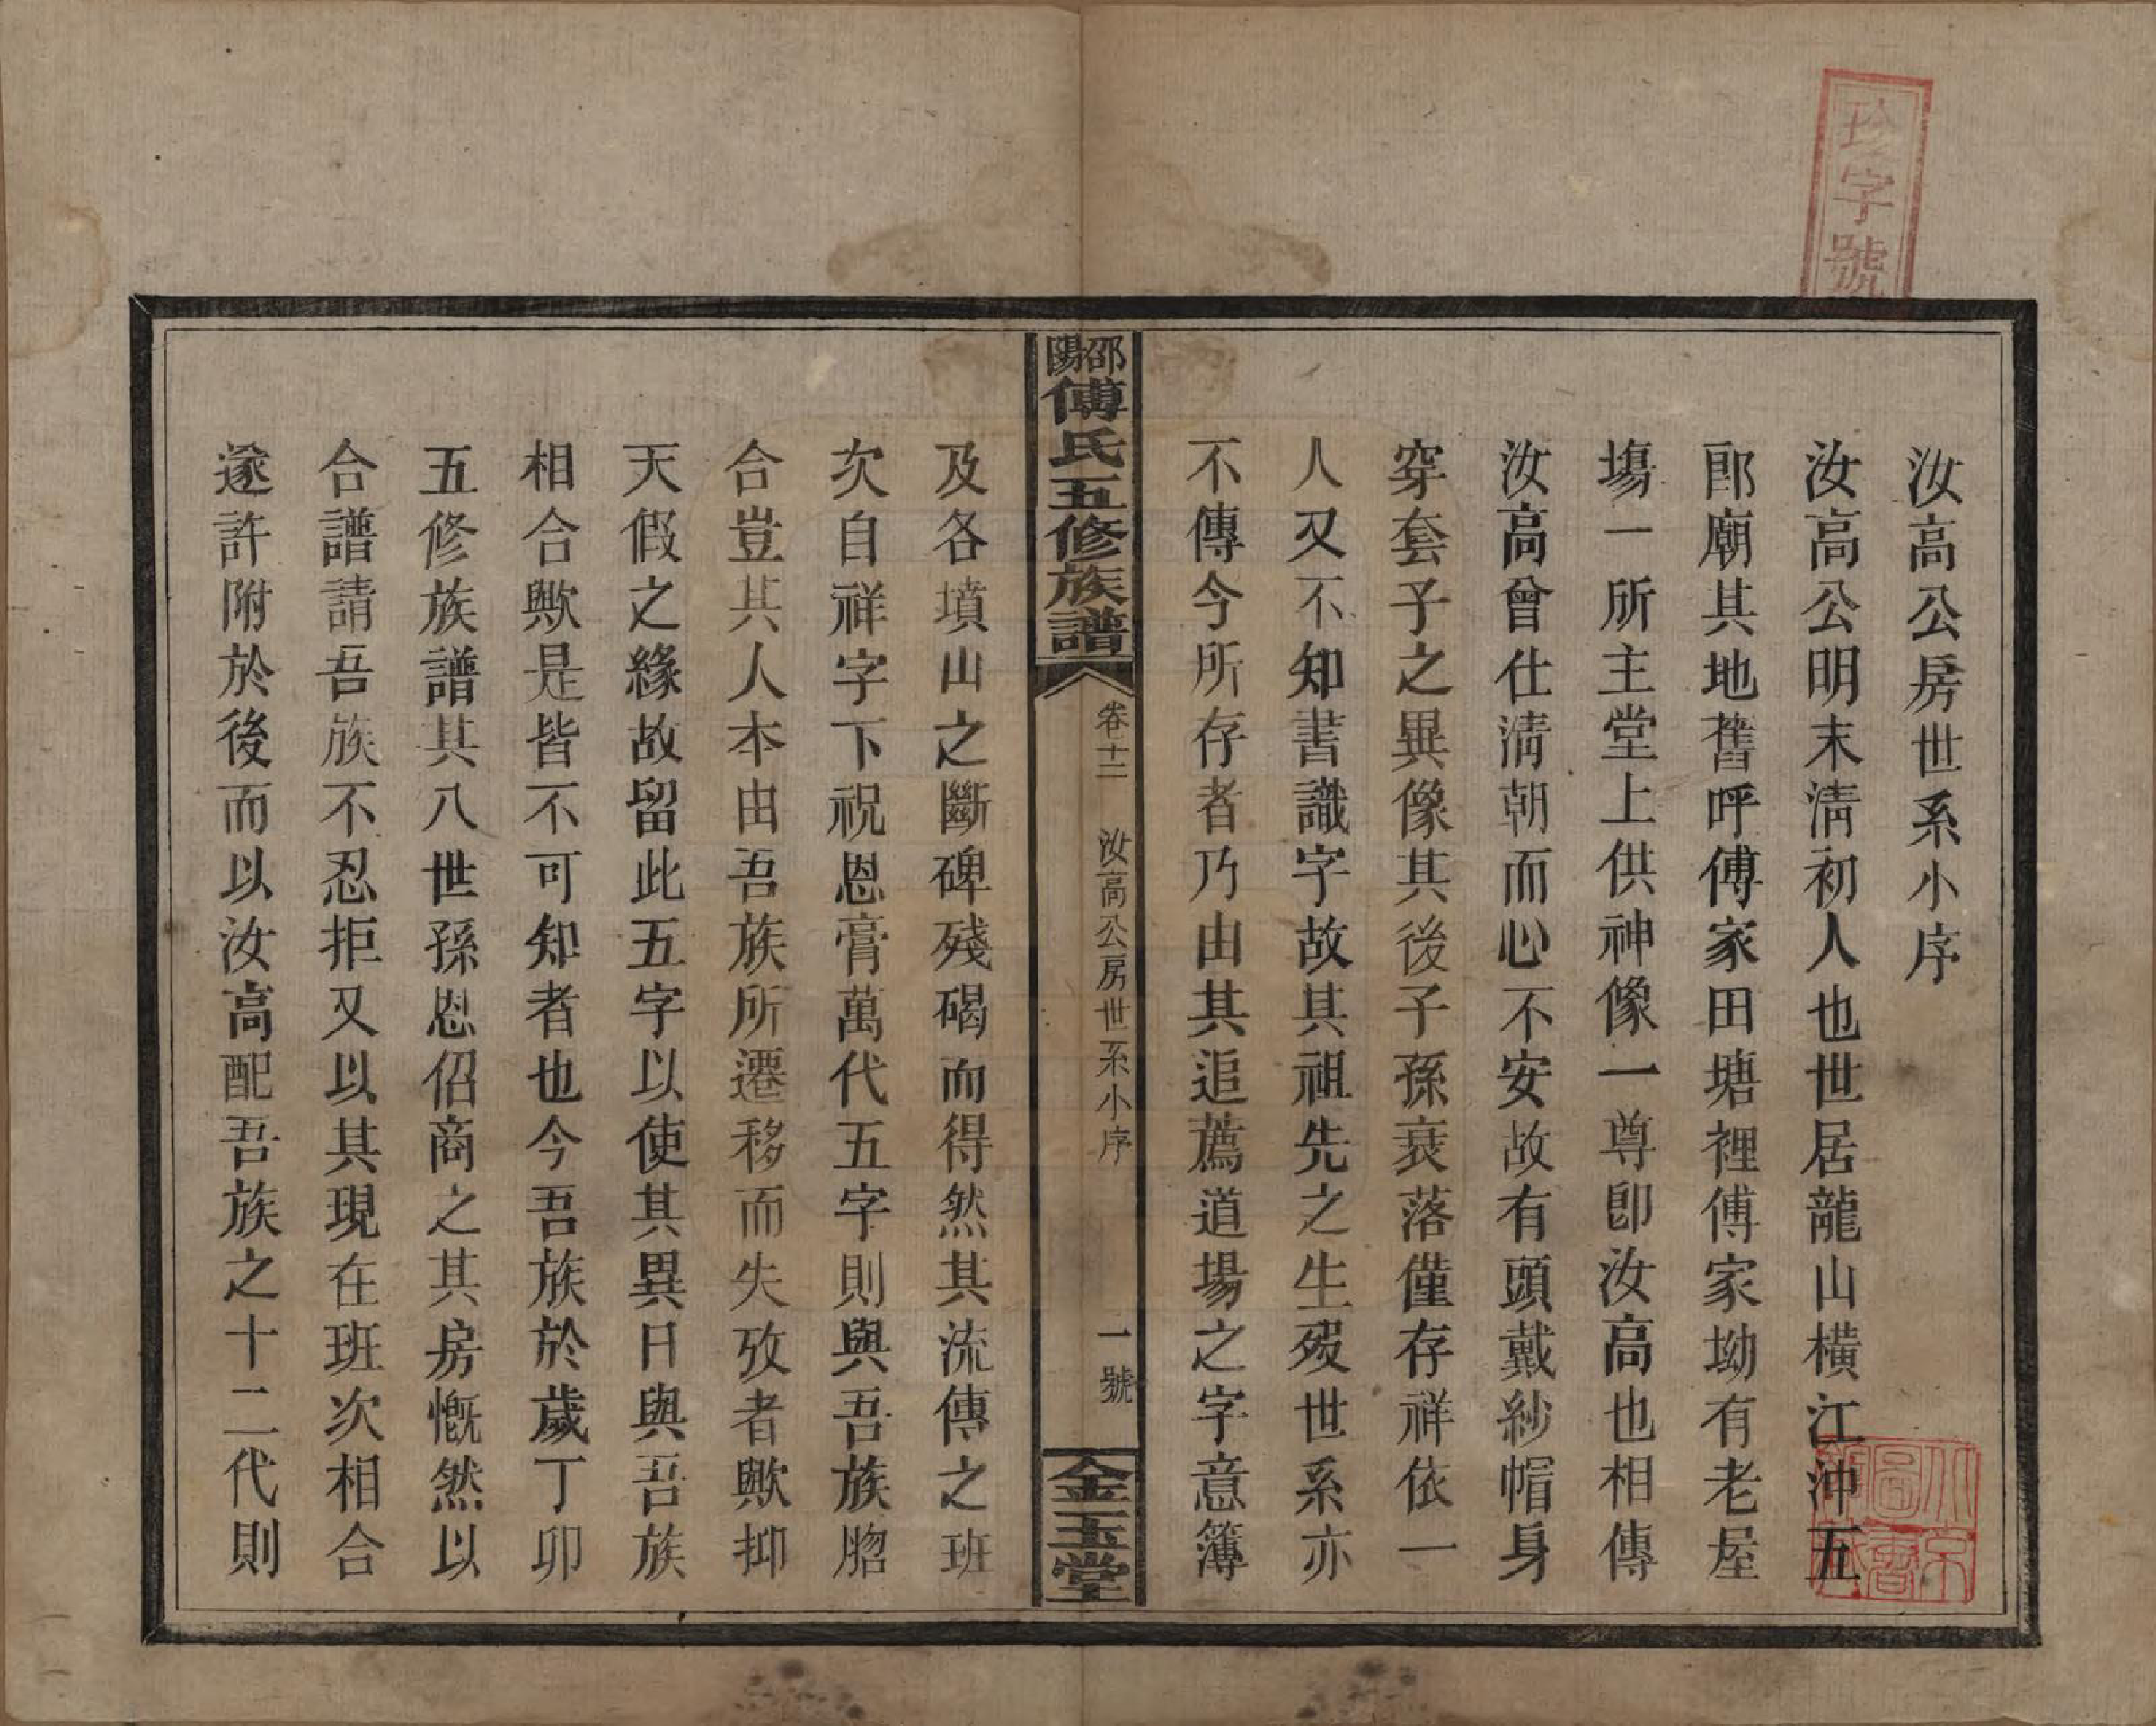 珍字號
汝高公房世系小序
汝高公明末淸初人也世居龍山橫江沖五
郎廟其地舊呼傅家田塘裡傅家坳有老屋
塲一所主堂上供神像一尊卽汝高也相傳
汝高曾仕淸朝而心不安故有頭戴紗帽身
穿套子之異像其後子孫衰落僅存祥依一
人又不知書識字故其祖先之生歿世系亦
不傳今所存者乃由其追薦道場之字意簿
邵陽傅氏五修族譜
卷十二
汝高公房世系小序
一號
金玉堂
及各墳山之斷碑殘碣而得然其流傳之班
次自祥字下祝恩膏萬代五字則與吾族脗
合豈其人本由吾族所遷移而失攷者歟抑
天假之緣故留此五字以使其異日與吾族
相合歟是皆不可知者也今吾族於歲丁卯
五修族譜其八世孫恩佋商之其房慨然以
合譜請吾族不忍拒又以其現在班次相合
遂許附於後而以汝高配吾族之十二代則